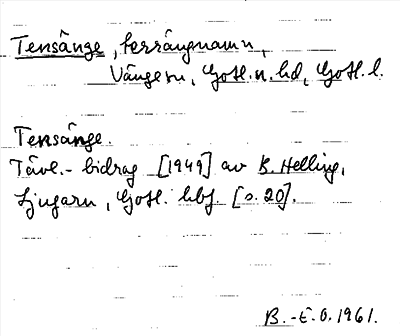 Tensänge, terrängnamn,
Vänge sn, Gotl. n. hd, Gotl. l.
Tensänge.
Tävl.- bidrag [1949] av B. Helling,
Ljugarn, Gotl. hbf. [s. 20].
B.-E.O. 1961.